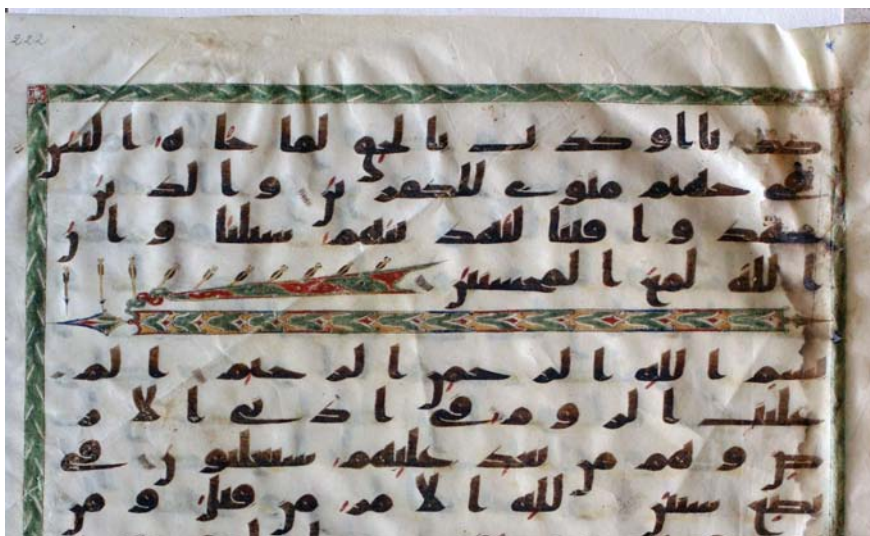 222
كذبا او كذب بالحق لما جاه اليس
في جهنم مثوى للكفرين والذين
جهدوا فينا لنهدينهم سبلنا وان
الله لمع المحسنين
بسم الله الرحمن الرحيم الم
غلبت الروم في ادنى الار
ض وهم من بعد غلبهم سيغلبون في
بضع سنين لله الامر من قبل ومن